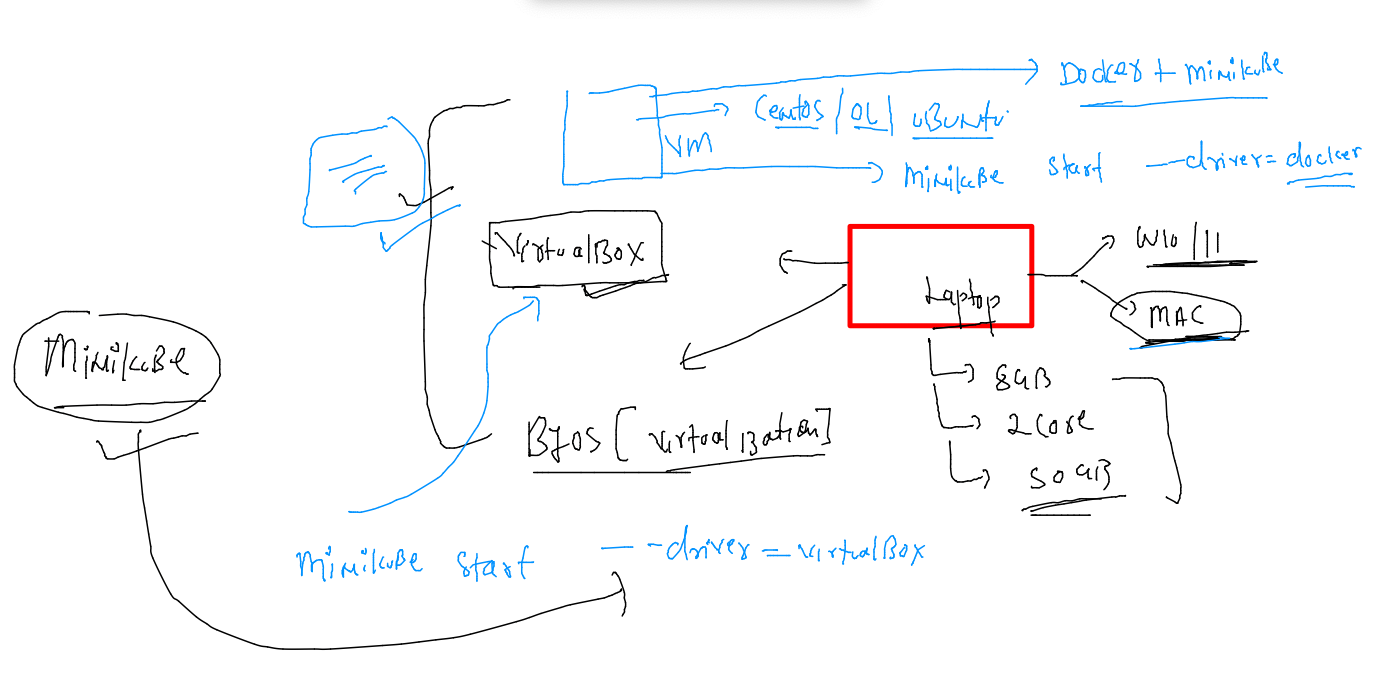 Docker + minikube
Centos / OL / ubuntu
VM
minikube start --driver=docker
VirtualBox
W10/11
Laptop
MAC
minikube
8GB
BIOS [ virtualization]
2 core
50 GB
minikube start --driver = virtualBox